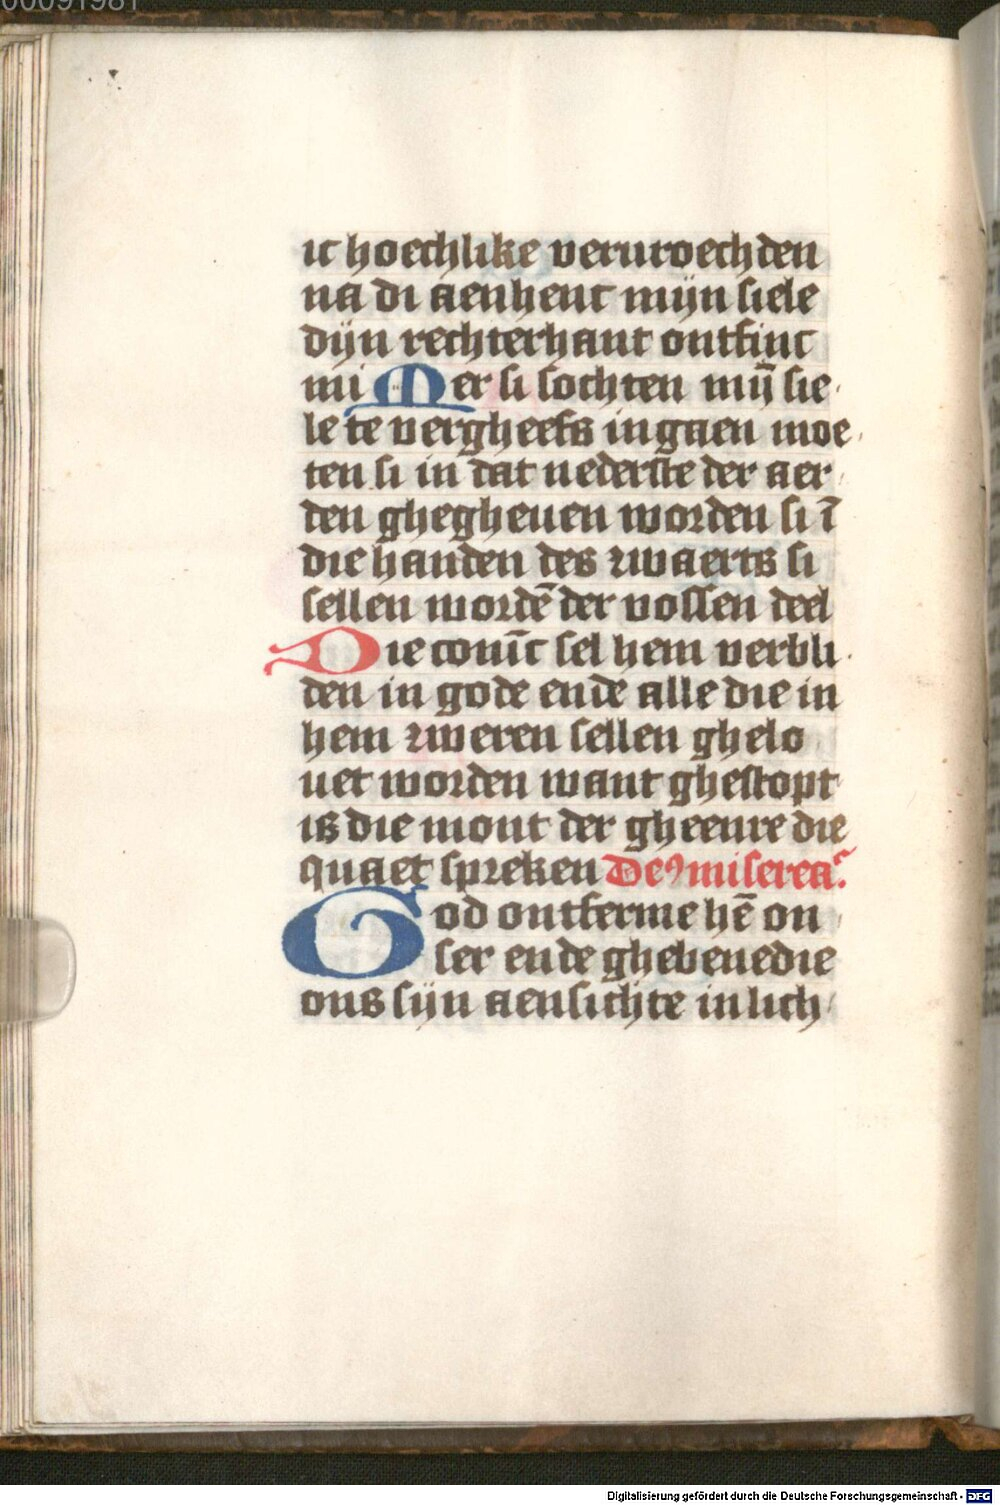 00091981
ic hoechlike veruroechden
na di aenhenc mijn siele
dijn rechterhant ontfinc
mi Mer si sochten mij̄ sie
le te vergheefs ingaen moe
ten si in dat nederste der aer
den ghegheuen worden si ī
die handen des zwaerts si
sellen wordē der vossen deel
Die coninc sel hem verbli
den in gode ende alle die in
hem zweren sellen ghelo
uet worden want ghestopt
is die mont der gheenre die
quaet spreken Deꝰ miserea
God ontferme hē on
ser ende ghebenedie
ons sijn aensichte in lich
Digitalisierung gefördert durch die Deutsche Forschungsgemeinschaft - DFG